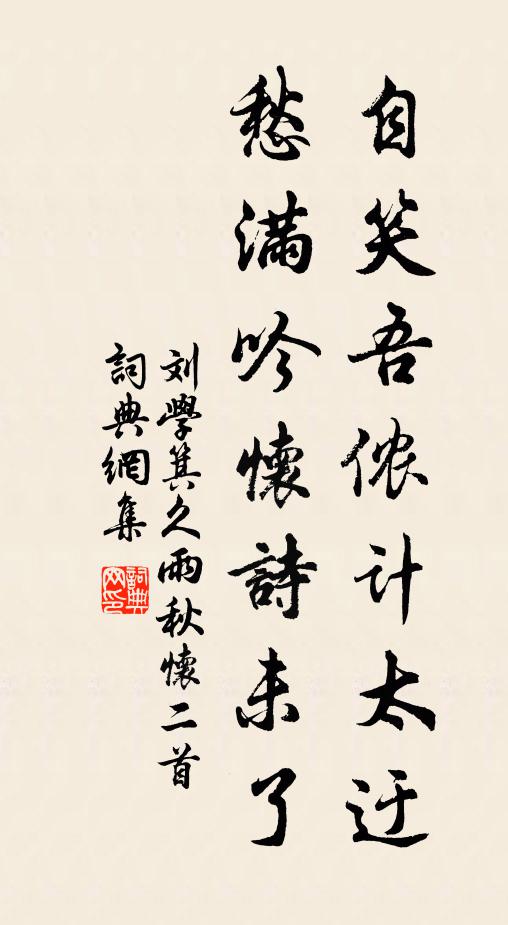 自笑吾侬计太迂
愁满吟懷詩未了
刘學箕久雨秋懷二首
詞典網集
詞典網印